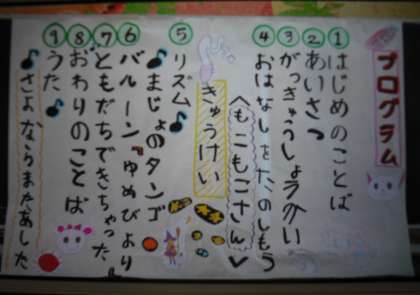 プログラム
① はじめのことば
② あいさつ
③ がっきゅうしょうかい
④ おはなしをたのしもう
<もこもこさん>
きゅうけい
⑤ リズム♪
♪まじょのタンゴ
⑥ バルーン『ゆめびより
⑦ ともだちできちゃった
⑧ おわりのことば
⑨ うた♪
♪さよならまたあした